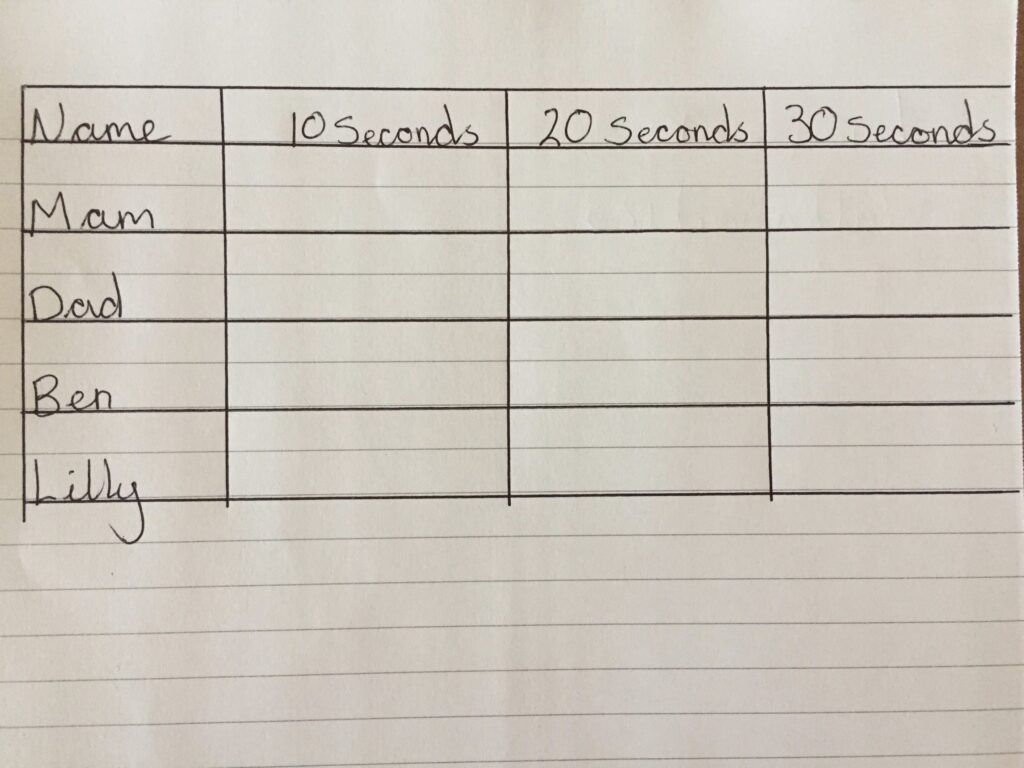 Name 10 Seconds 20 Seconds 30 Seconds
Mam
Dad
Ben
Lilly